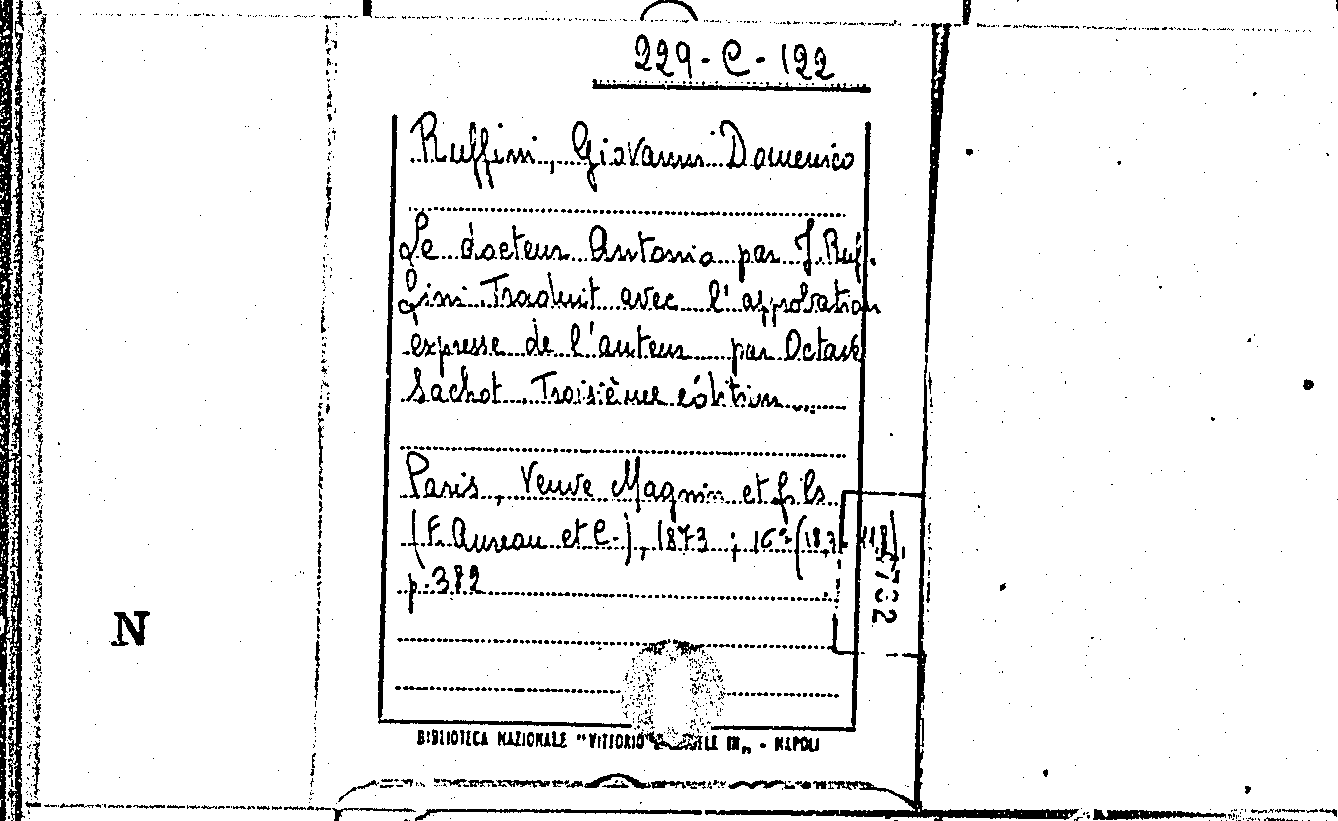 229-C-122
Ruffini, Giovanni Domenico
Le docteur Antonio par J. Ruf-
fini. Traduit avec l'approbation
expresse de l'auteur par Octave
Sachot. Troisième édition...
Paris, Veuve Magnin et fils
(F. Aureau et C.), 1873; 16º (18,3 118),
p. 382
5732
N
BIBLIOTECA NAZIONALE "VITTORIO III" - NAPOLI